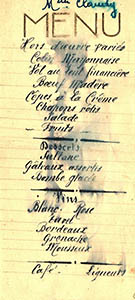 Mlle Claudy
MENU
Hors d'œuvre variés
Colin Mayonnaise
Vol au vent financière
Bœuf Madère
Cèpes à la Crème
Chapons rotis
Salade
Fruits
Desserts
Sultane
Gâteaux assortis
Bombe glacée
Vins
Blanc Rose
Bordeaux
Grenache
Mousseux
Café Liqueurs